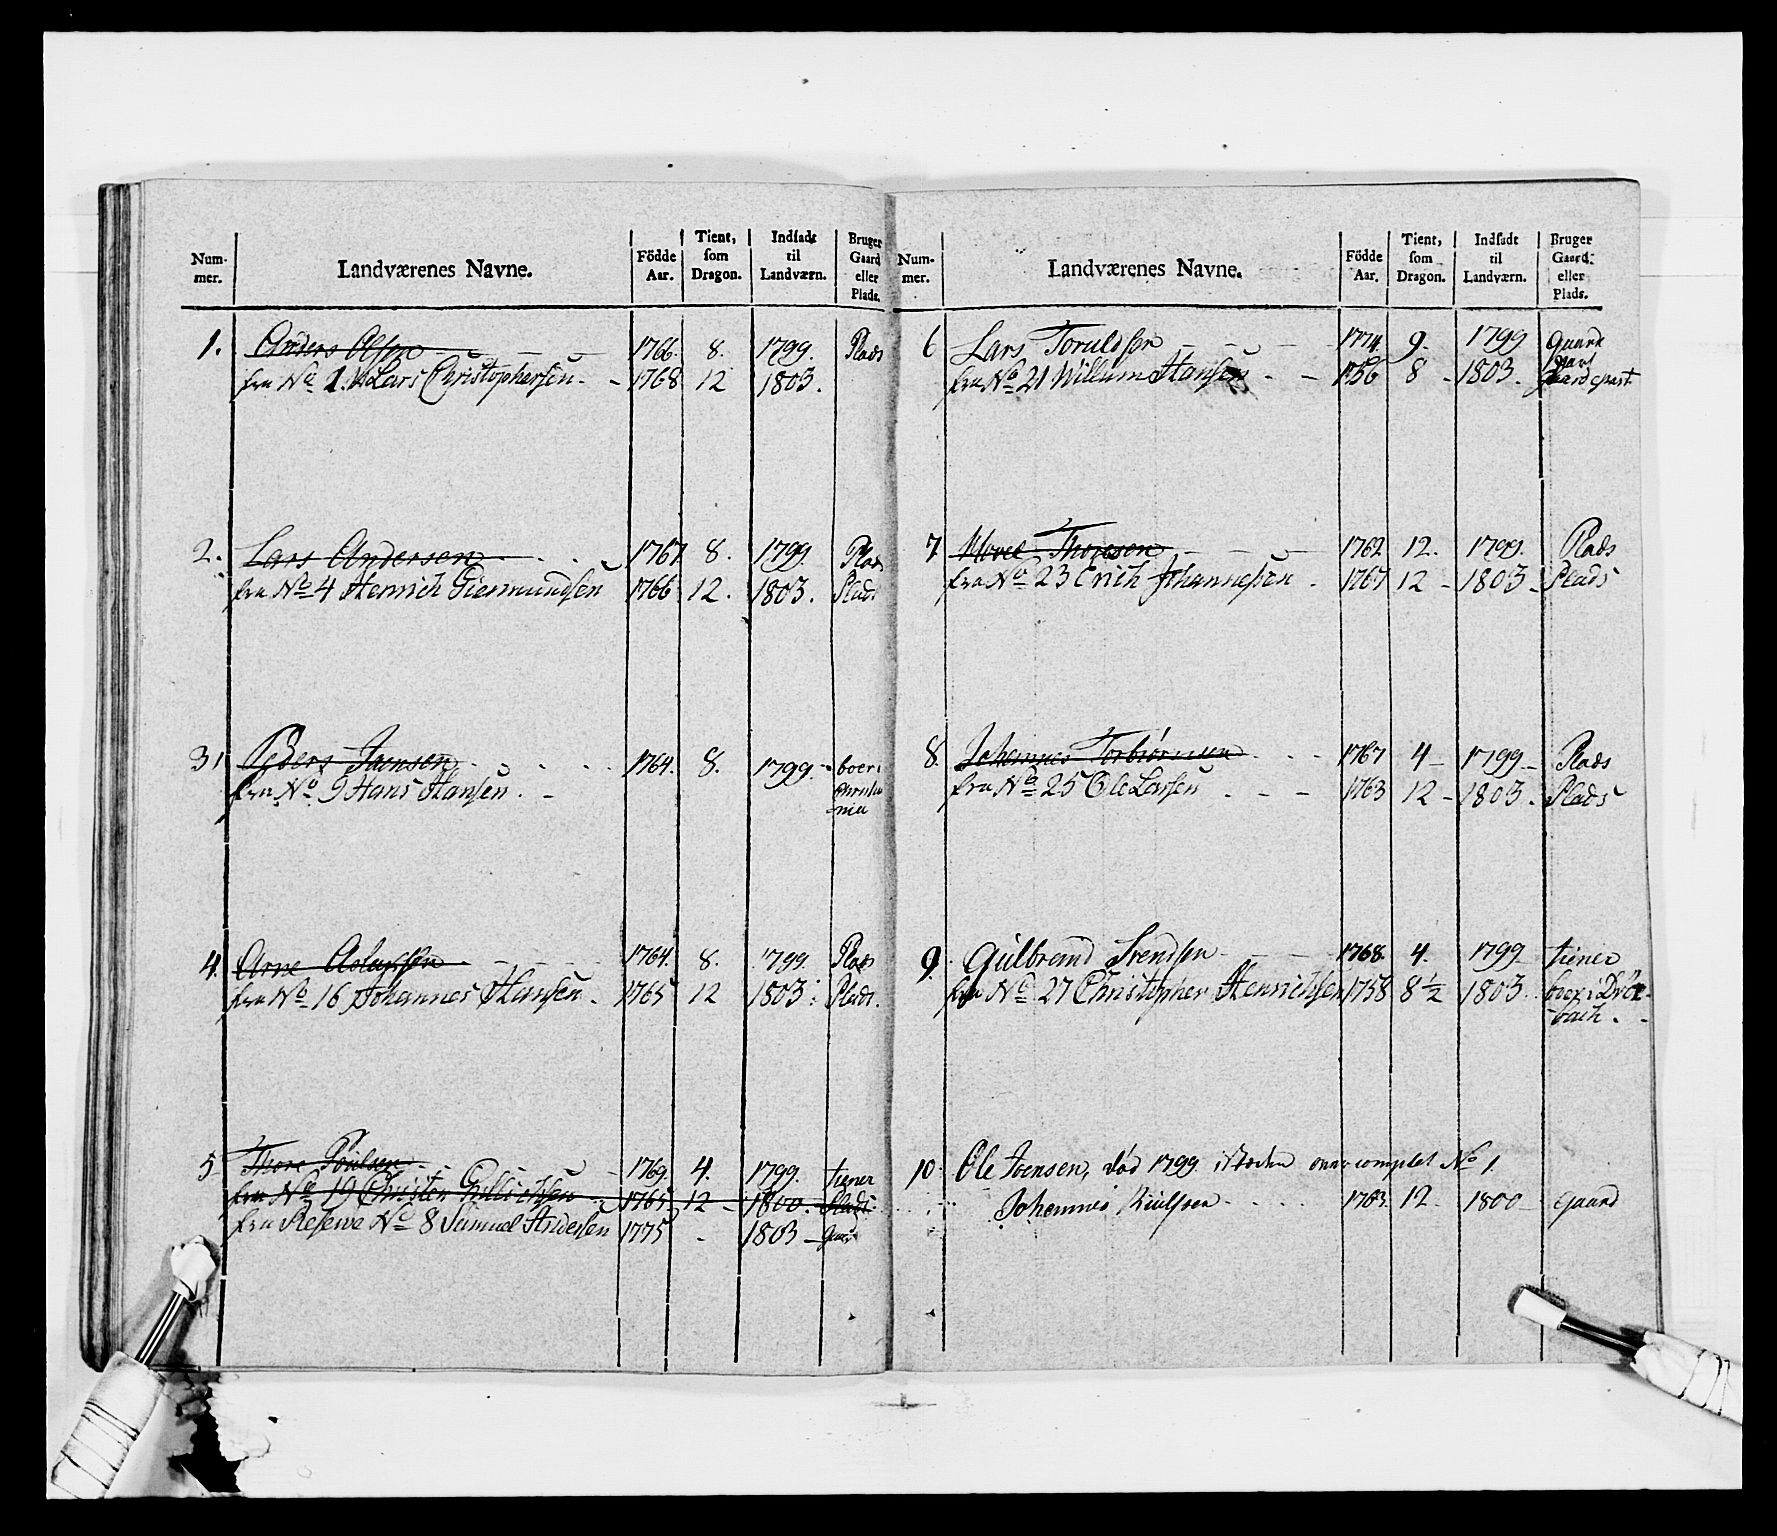 Num- mer. Landværenes Navne. Födde Aar. Tient, som Dragon. Indsadt til Landværn. Bruger Gaard eller Plads.
1. Anders Olsen 1766. 8. 1799. Plads
fra No 1. Lars Christophersen 1768 12 1803.
2. Lars Andersen 1767 8. 1799. Plads
fra No 4 Henrich Giermundsen 1766 12. 1803. Plads
3 Peders Jaensen 1764. 8. 1799. boer i
fra No 9 Hans Hansen Christia
nia
4. Arne Aslaksen 1764. 8. 1799. Plads
fra No 16 Johannes Hansen 1765 12 1803. Plads.
5 Thore Poulsen 1769. 4. 1799. tiener
fra No 19 Christen 1765 12 1800. Plads
fra Reserve No 8 Samuel Andersen 1775 - 1803 Gaard
Num- mer. Landværenes Navne. Födde Aar. Tient, som Dragon. Indsadt til Landværn. Bruger Gaard eller Plads.
6 Lars Toruldsen 1774. 9. 1799 gaard
fra No 21 Willum Hansen 1756 8 1803. gaard part
7 Thoresen 1762 12. 1799. Plads
fra No 23 Erich Johannesen 1767 12 1803 Plads
8. Johannes Torbiørnsen 1767 4 1799 Plads
fra No 25 Ole Larsen 1763 12 1803. Plads
9. Gulbrand Svendsen 1768. 4. 1799 tiener
fra No 27 Christopher Henrichsen 1758 8½ 1803. boer i Drö-
bach.
10. Ole Joensen, död 1799 istæden overcomplet No 1.
Johannes 1763. 12. 1800 gaard